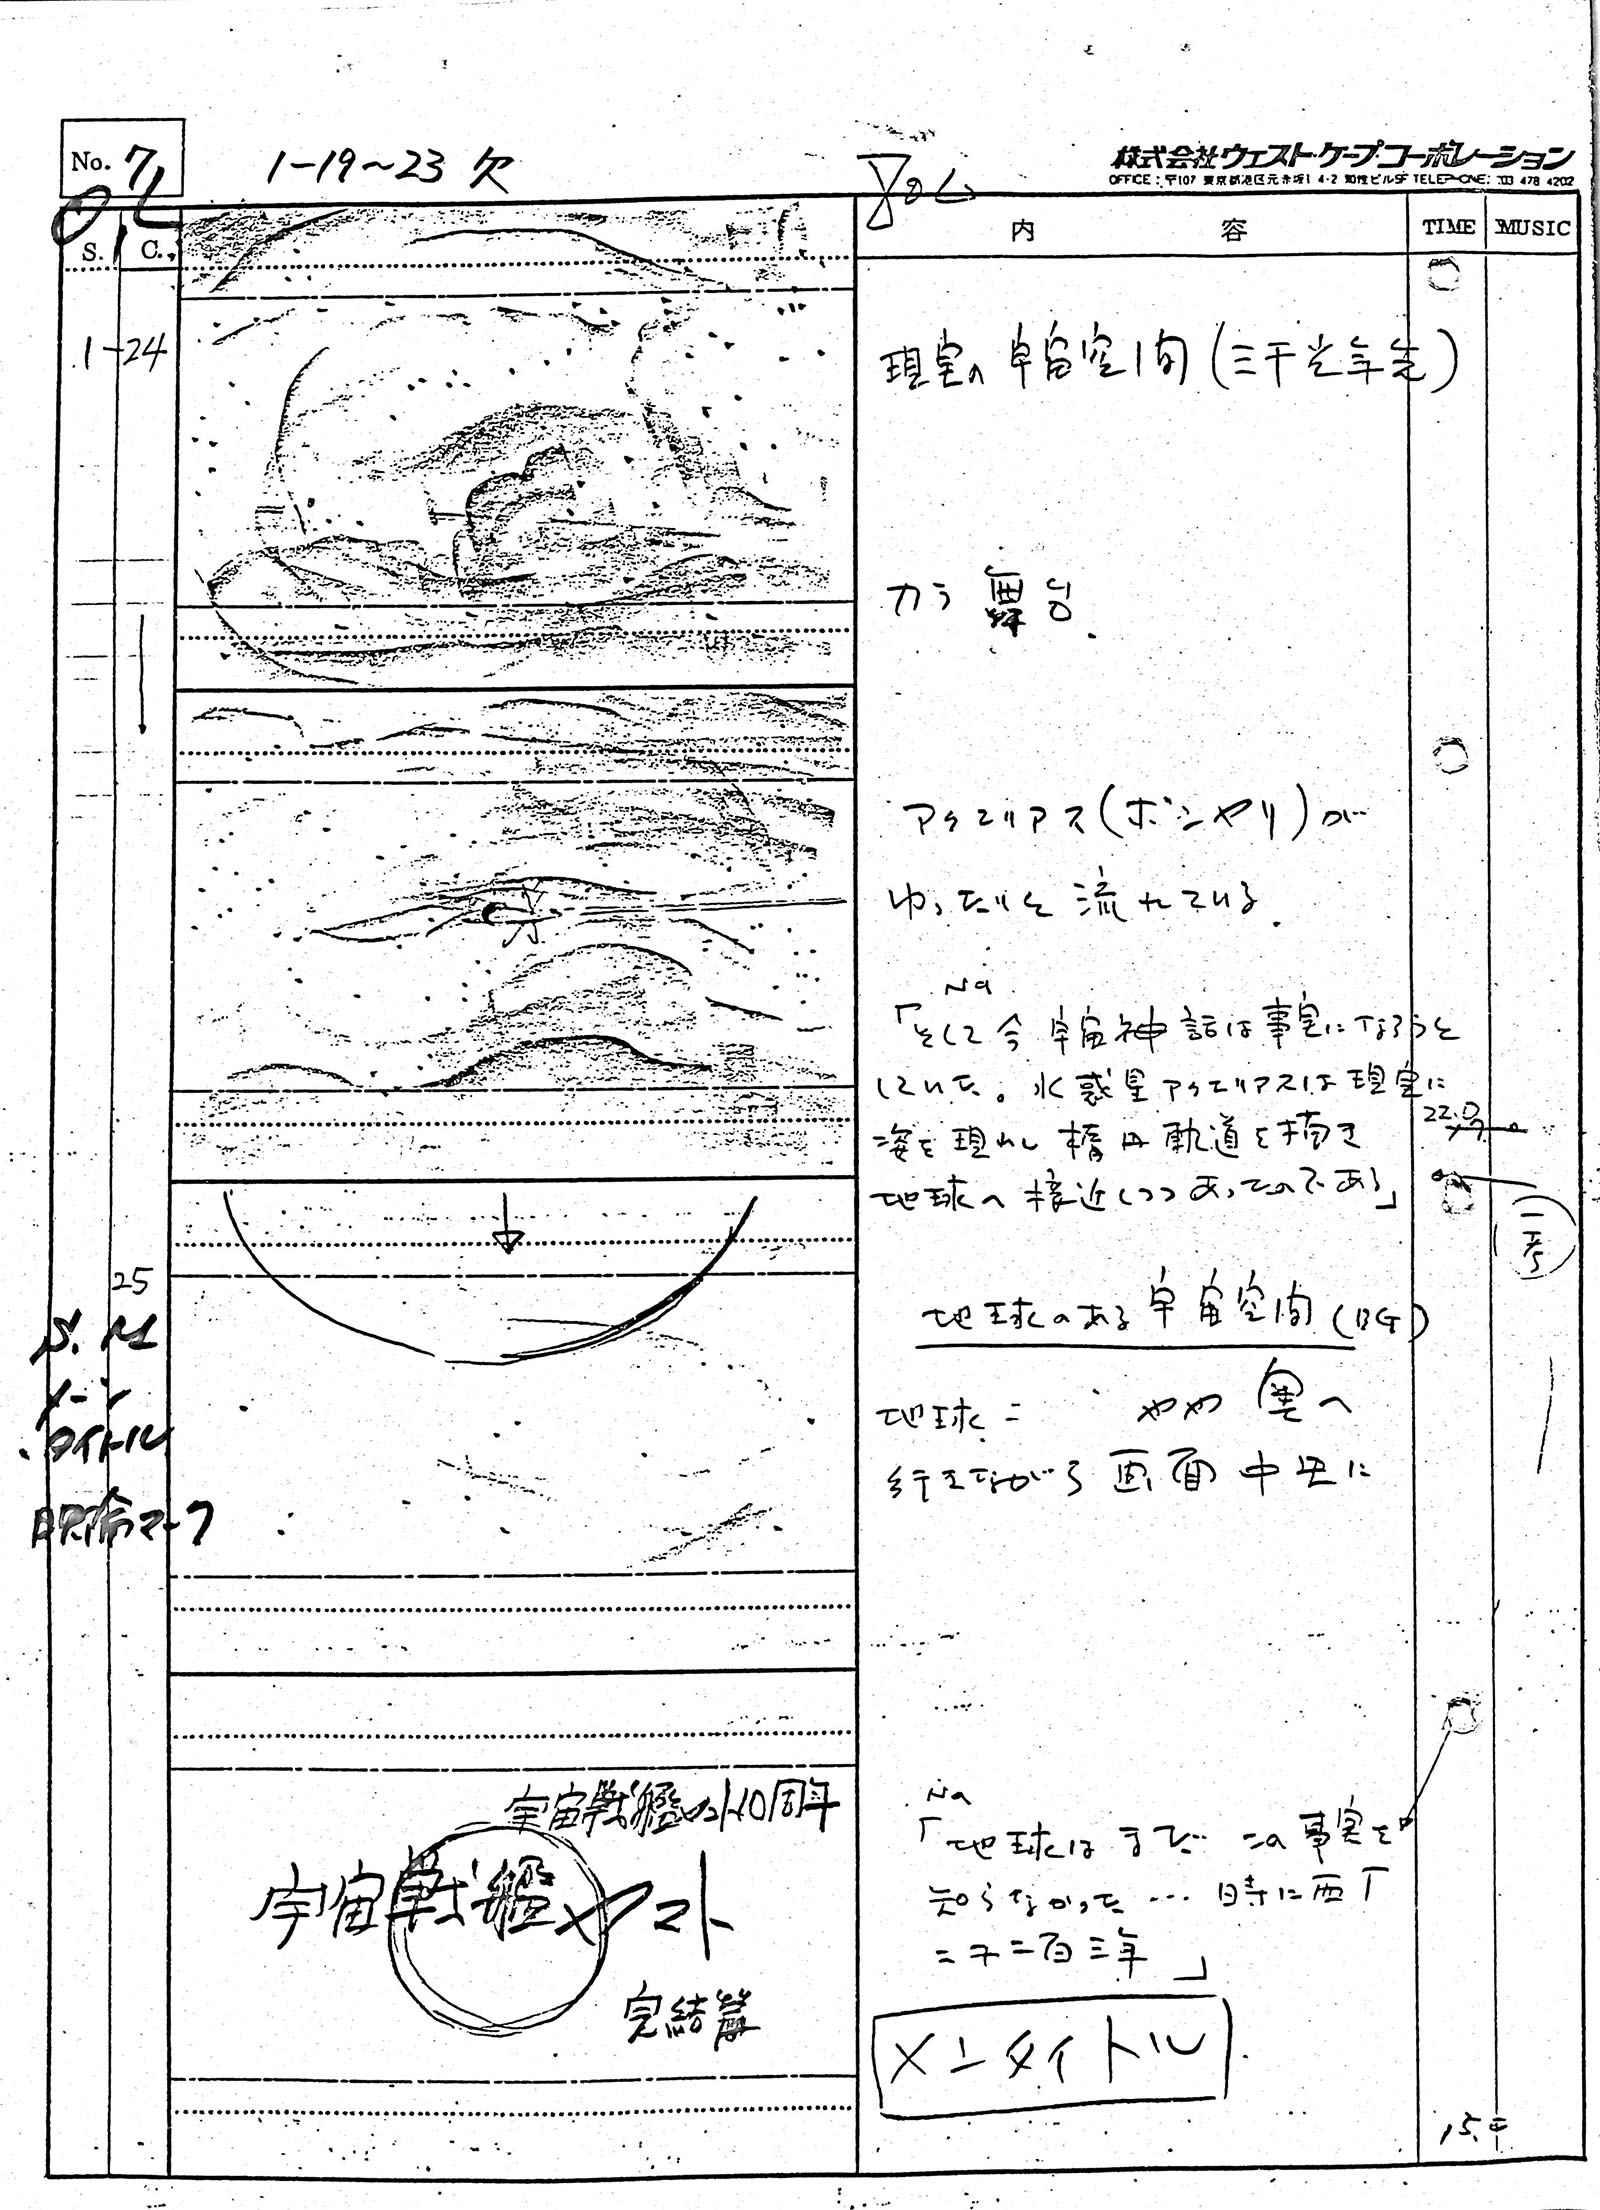 No. 7
1-19~23 欠
株式会社ウェスト・ケープ・コーポレーション
OFFICE: 〒107 東京都港区元赤坂1-4-2 TELEPHONE: 03 478 4202
S. C. 内 容 TIME MUSIC
1-24
現実の宇宙空間(三千光年先)
カラ舞台.
アクエリアス(ボンヤリ)が
ゆったりと流れている.
Na
「そして今宇宙神話は事実になろうと
していた。水惑星アクエリアスは現実に
姿を現わし楕円軌道を描き
地球へ接近しつつあったのである」
22.0
25
S. M
メーン
タイトル
映倫マーク
地球のある宇宙空間(BG)
地球= やや奥へ
行きながら画面中央に
宇宙戦艦ヤマト10周年
宇宙戦艦ヤマト
完結篇
Na
「地球はまだ… この事実を
知らなかった…時に西丁
二千二百三年」
メンタイトル
15.0